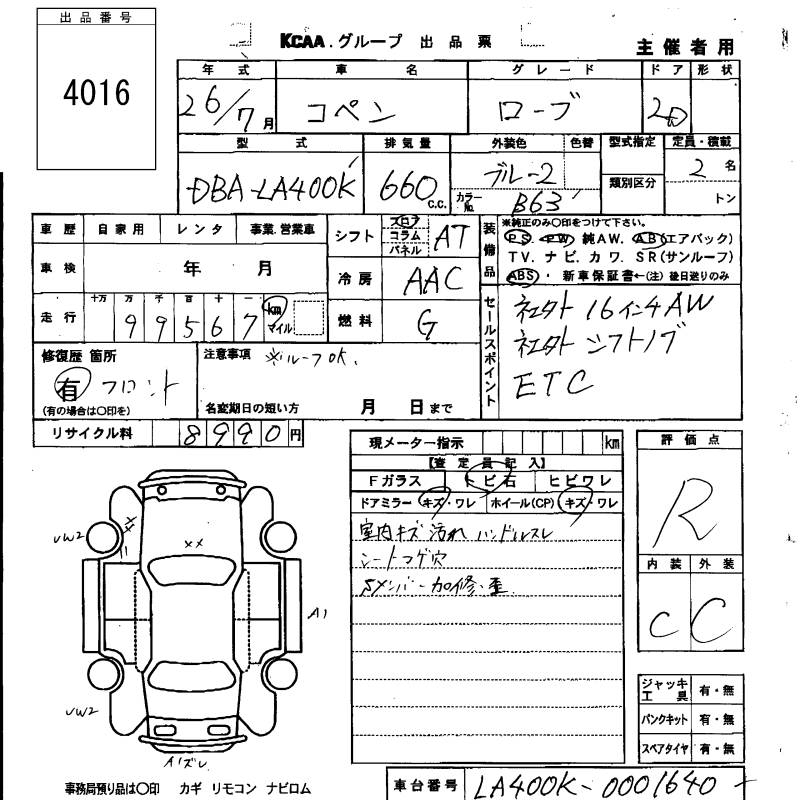 出品番号
4016
KCAA.グループ 出品票
主催者用
年式 車名 グレード ドア 形状
26/7月 コペン ローブ 2D
型式 排気量 外装色 色替 型式指定 定員・積載
DBA-LA400K 660 C.C. ブルー2 2名
カラーNo. B63 類別区分 トン
車歴 自家用 レンタ 事業.営業車
シフト フロア コラム パネル AT
装備品 ※純正のみ○印をつけて下さい。
PS PW 純AW. AB(エアバック)
TV. ナビ. カワ. SR(サンルーフ)
ABS ・ 新車保証書←(注) 後日送りのみ
車検 年 月
冷房 AAC
走行 十万 万 千 百 十 一 km マイル
99567
燃料 G
セールスポイント
社外 16インチAW
社外 シフトノブ
ETC
修復歴 箇所
有 フロント
(有の場合は○印を)
注意事項 ※ルーフOK.
名変期日の短い方 月 日まで
リサイクル料 8990円
現メーター指示 km
【査定員記入】
Fガラス トビ石 ヒビワレ
ドアミラー キズ・ワレ ホイール(CP) キズ・ワレ
室内キズ 汚れ ハンドルスレ
シートコゲ穴
Sメンバー加修・歪
評価点
R
内装 外装
C C
XX
VW2
A1
VW2
A1ズレ
ジャッキ工具 有・無
パンクキット 有・無
スペアタイヤ 有・無
事務局預り品は○印 カギ リモコン ナビロム
車台番号 LA400K-0001640